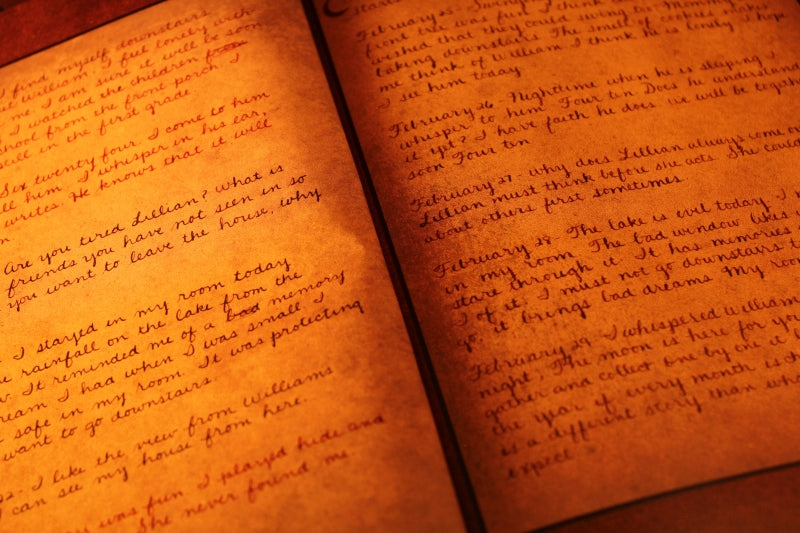 I find myself downstairs
William. I feel lonely with
me. I am sure it will be soon
I watched the children
school from the front porch. I
still in the first grade.
Six twenty four. I come to him
tell him. I whisper in his ear,
writes. He knows that it will
Are you tired Lillian? What is
friends you have not seen in so
you want to leave the house, why
I stayed in my room today
rainfall on the lake from the
It reminded me of a bad memory
dream I had when I was small. I
safe in my room. It was protecting
want to go downstairs.
22. I like the view from Williams
can see my house from here.
was fun. I played hide and
She never found me
February 25. Swing
front tree was fun. I think
wished that they could swing too. Mommy
baking downstairs. The smell of cookies makes
me think of William. I think he is lonely. I hope
I see him today.
February 26. Nighttime when he is sleeping I
whisper to him. Four ten. Does he understand
it yet? I have faith he does. We will be together
soon. Four ten
February 27. Why does Lillian always come
Lillian must think before she acts. She could
about others first sometimes.
February 28. The lake is evil today. I
in my room. The bad window likes
stare through it. It has memories
of it. I must not go downstairs to
go. It brings bad dreams. My room
February 29. I whispered Williams
night. The moon is here for you
gather and collect one by one it
the year if every month is
is a different story than what
expect.